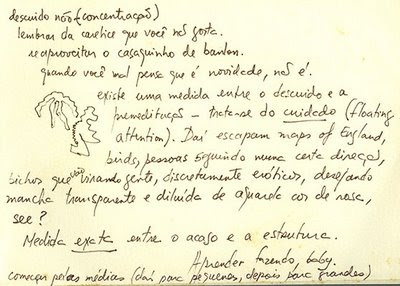 descuido não (concentração)
lembrar da caretice que você não gosta.
reaproveitar o casaquinho de banlon.
quando você não pensa que é novidade, não é.
existe uma medida entre o descuido e a
premeditação – trata-se do cuidado (floating
attention). Daí escapam maps of England,
birds, pessoas seguindo numa certa direção,
bichos que vão virando gente, discretamente eróticos, desejando
mancha transparente e diluída de aguada cor de rosa,
see?
Medida exata entre o acaso e a estrutura.
Aprender fazendo, baby.
começar pelas médias (daí para pequenas, depois para grandes)